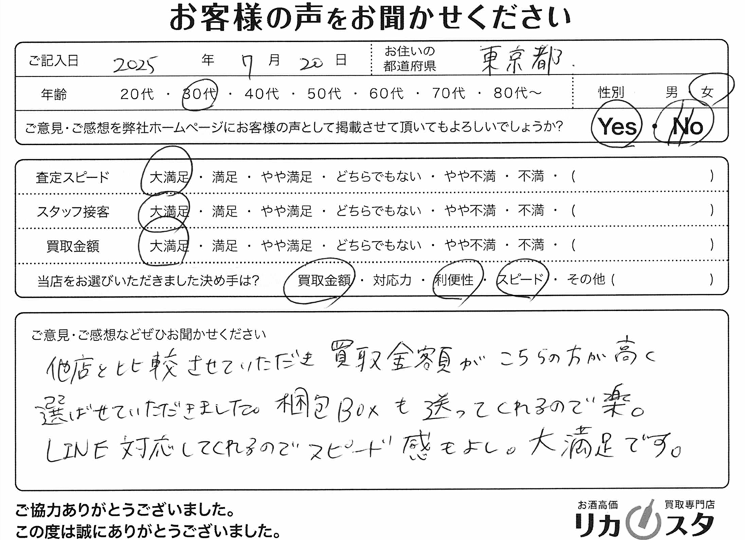 お客様の声をお聞かせください
ご記入日 2025 年 7 月 20 日 お住いの都道府県 東京都.
年齢 20代 ・ 30代 ・ 40代 ・ 50代 ・ 60代 ・ 70代 ・ 80代〜 性別 男 ・ 女
ご意見・ご感想を弊社ホームページにお客様の声として掲載させて頂いてもよろしいでしょうか? Yes ・ No
査定スピード 大満足 ・ 満足 ・ やや満足 ・ どちらでもない ・ やや不満 ・ 不満 ・ ( )
スタッフ接客 大満足 ・ 満足 ・ やや満足 ・ どちらでもない ・ やや不満 ・ 不満 ・ ( )
買取金額 大満足 ・ 満足 ・ やや満足 ・ どちらでもない ・ やや不満 ・ 不満 ・ ( )
当店をお選びいただきました決め手は? 買取金額 ・ 対応力 ・ 利便性 ・ スピード ・ その他 ( )
ご意見・ご感想などぜひお聞かせください
他店と比較させていただき 買取金額が こちらの方が高く
選ばせていただきました。梱包BOXも送ってくれるので楽。
LINE対応してくれるのでスピード感もよし。大満足です。
ご協力ありがとうございました。
この度は誠にありがとうございました。
お酒高価 買取専門店
リカスタ